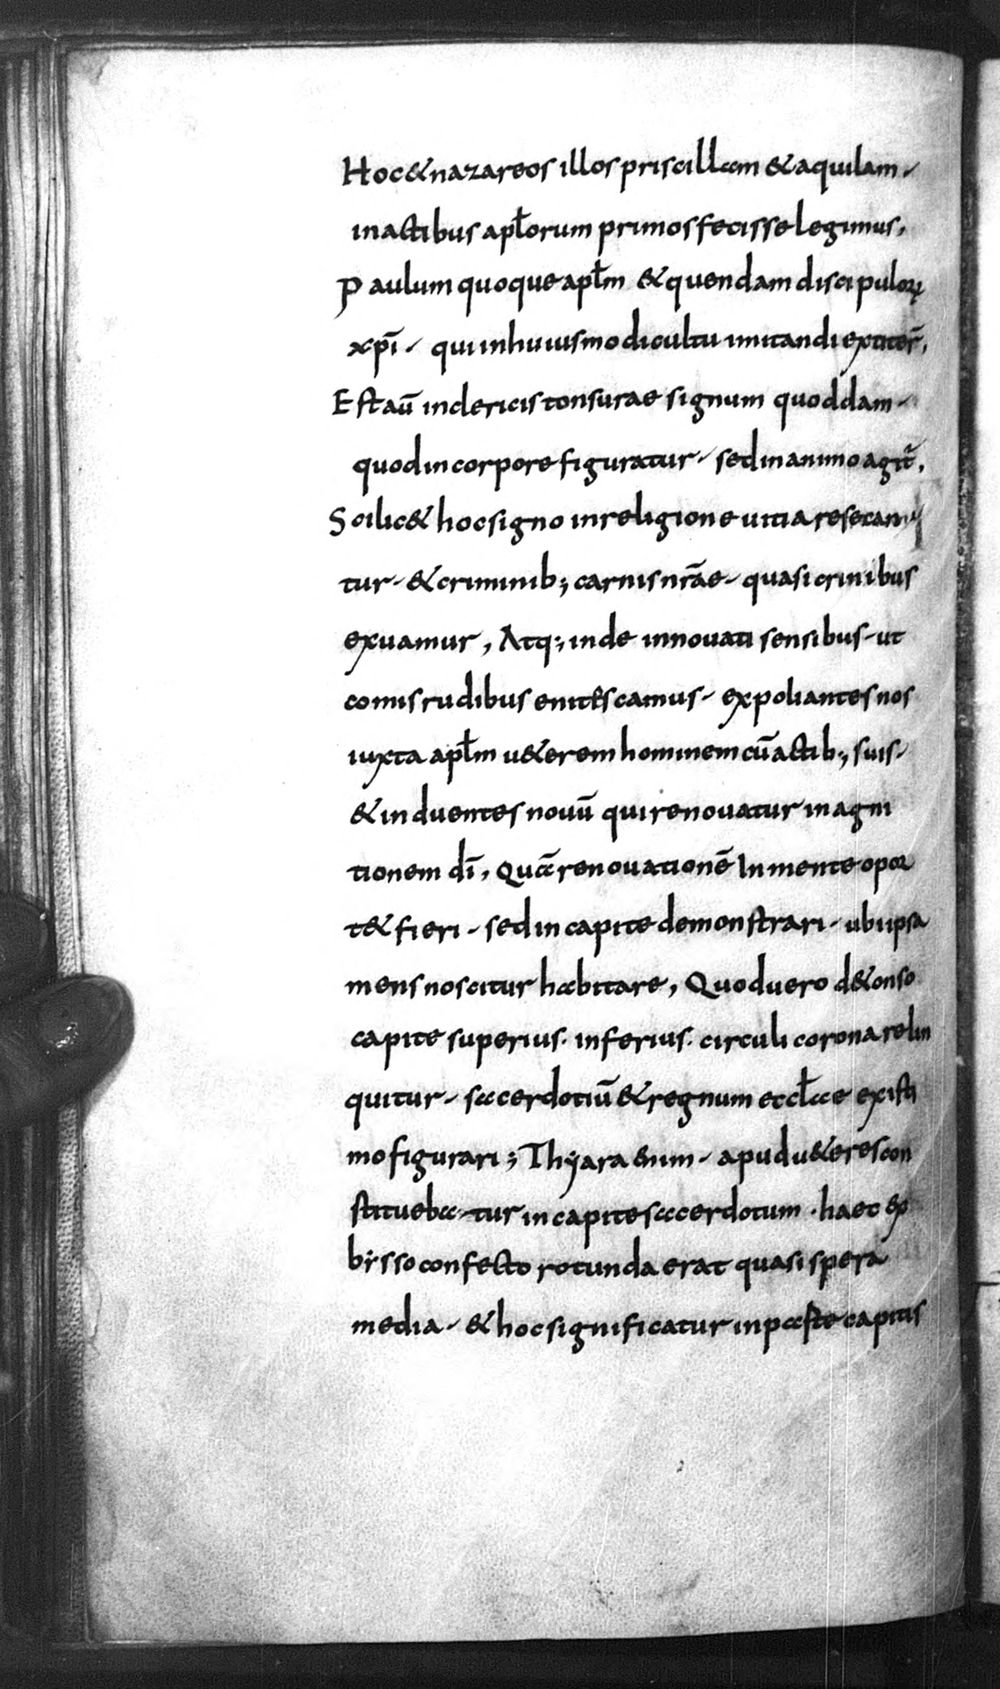 Hoc & nazareos illos priscillam & aquilam.
in actibus apłorum primos fecisse legimus,
Paulum quoque apłm & quendam discipuloꝝ
xpī. qui in huiusmodi cultu imitandi extiter̄,
Est aū in clericis tonsurae signum quoddam.
quod in corpore figuratur. sed in animo agit̃,
Scilic& hoc signo in religione uitia resecan
tur. & criminib; carnis nrāe. quasi crinibus
exuamur, Atq; inde innovati sensibus. ut
comis rudibus enitescamus. expoliantes nos
iuxta apłm u&erem hominem cū actib; suis.
& induentes novū qui renovatur in agni
tionem dī, Quā renovationē In mente opor
t& fieri. sed in capite demonstrari. ubi ipsa
mens noscitur habitare, Quod uero d&onso
capite superius. inferius. circuli corona relin
quitur. sacerdotiū & regnum eccłae existi
mo figurari; Thẏara enim. apud u&eres con
stitueba-tur in capite sacerdotum. haec ex
bẏsso confecto rotunda erat quasi spera
media. & hoc significatur in parte capitis